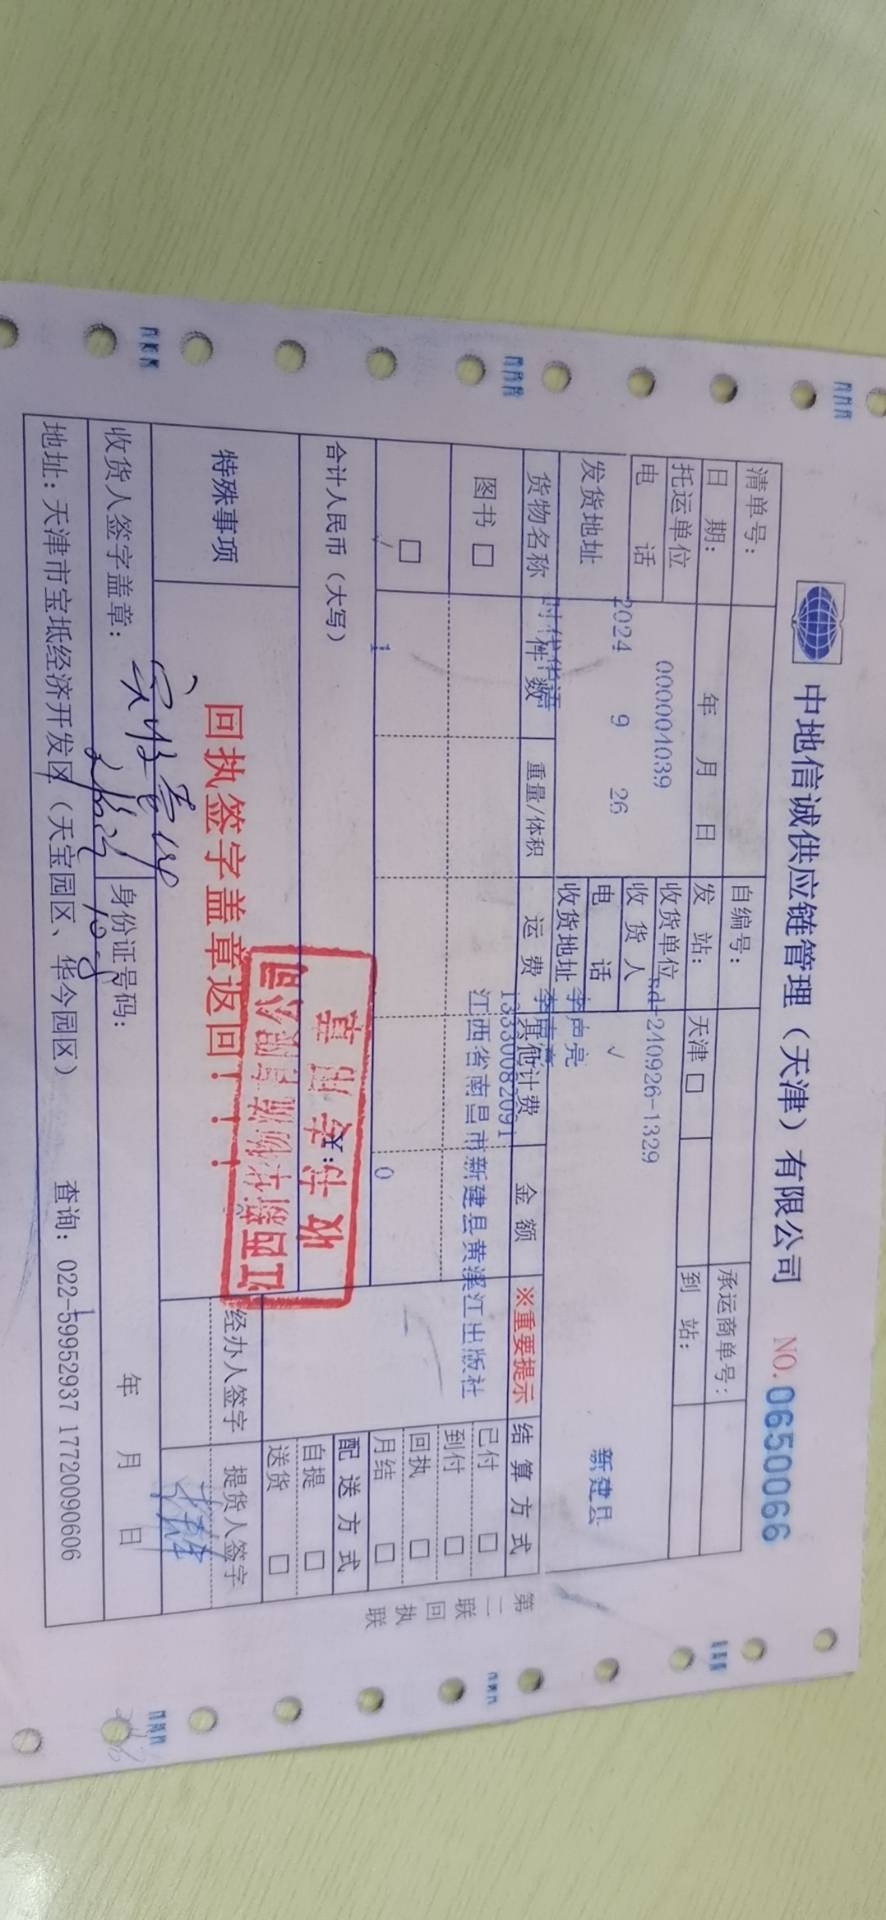 中地信诚供应链管理（天津）有限公司 NO. 0650066
清单号： 自编号： 承运商单号：
日 期： 年 月 日 发 站： 天津 □ 到 站：
托运单位 000004039 收货单位 nd-240926-1329
电 话 收 货 人
2024 9 26 电 话 √ 新建县
发货地址 收货地址 李声亮
时代华语
货物名称 件 数 重量/体积 运 费 其他计费 金 额 ※重要提示 结 算 方 式
13330082091
图书 □ 江西省南昌市新建县黄溪江出版社 已付 □
到付 □
□ 回执 □
1 0 月结 □
合计人民币（大写） ￥： 配 送 方 式
收书专用章
自提 □
送货 □
特殊事项 回执签字盖章返回！！！ 经办人签字 提货人签字
收货人签字盖章： 身份证号码： 年 月 日
地址：天津市宝坻经济开发区（天宝园区、华今园区） 查询：022-59952937 17720090606
第二联 回执联